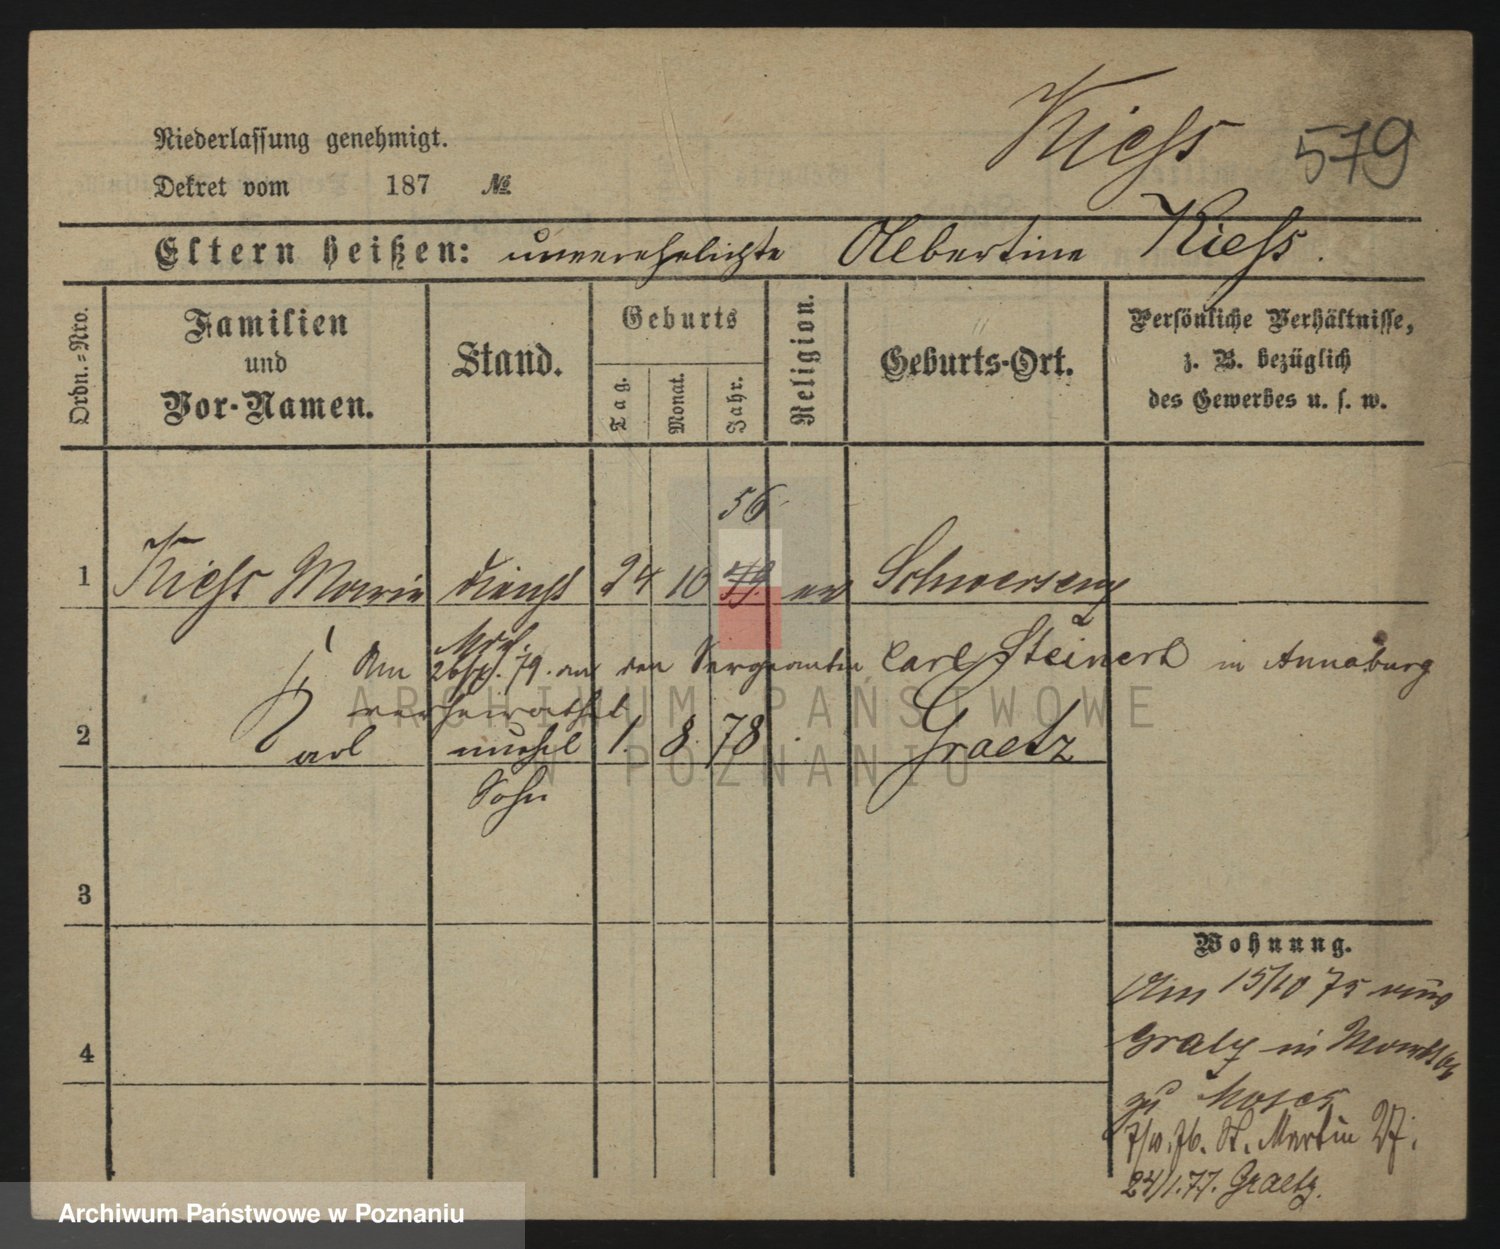 Kiess 579
Niederlassung genehmigt.
Dekret vom 187 №
Eltern heißen: unverehelichte Albertine Kiess.
Ordn.-Nro.
Familien
und
Vor-Namen.
Stand.
Geburts
Tag.
Monat.
Jahr.
Religion.
Geburts-Ort.
Persönliche Verhältnisse,
z. B. bezüglich
des Gewerbes u. s. w.
56
1 Kiess Marie 24 10 79 ev Schwersenz
Am 79. an den Sergeanten Carl Steinert in Annaburg
verheirathet
2 Carl unehel 1. 8. 78 Graetz
Sohn
3
4
Wohnung.
Am 15/10 75 von
Graetz in
zu Moses
7/10. 76. St. Martin 27.
24/1. 77. Graetz.
ARCHIWUM PAŃSTWOWE
W POZNANIU
Archiwum Państwowe w Poznaniu